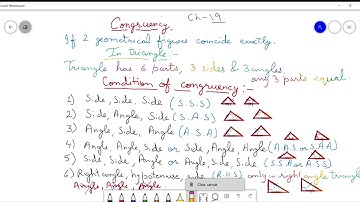 Ch-19
Congruency
If 2 geometrical figures coincide exactly.
In triangle:-
Triangle has 6 parts, 3 sides & 3 angles,
any 3 parts equal.
Condition of congruency:-
1) Side, Side, Side (S.S.S)
2) Side, Angle, Side (S.A.S)
3) Angle, Side, Angle (A.S.A)
4) Angle, Angle, Side or Side, Angle, Angle (A.A.S or S.A.A)
5) Side, Side, Angle or Angle, Side, Side (S.S.A or A.S.S)
6) Right angle, hypotenuse, side (R.H.S) only in right angle triangle
Angle, Angle, Angle
Clear canvas